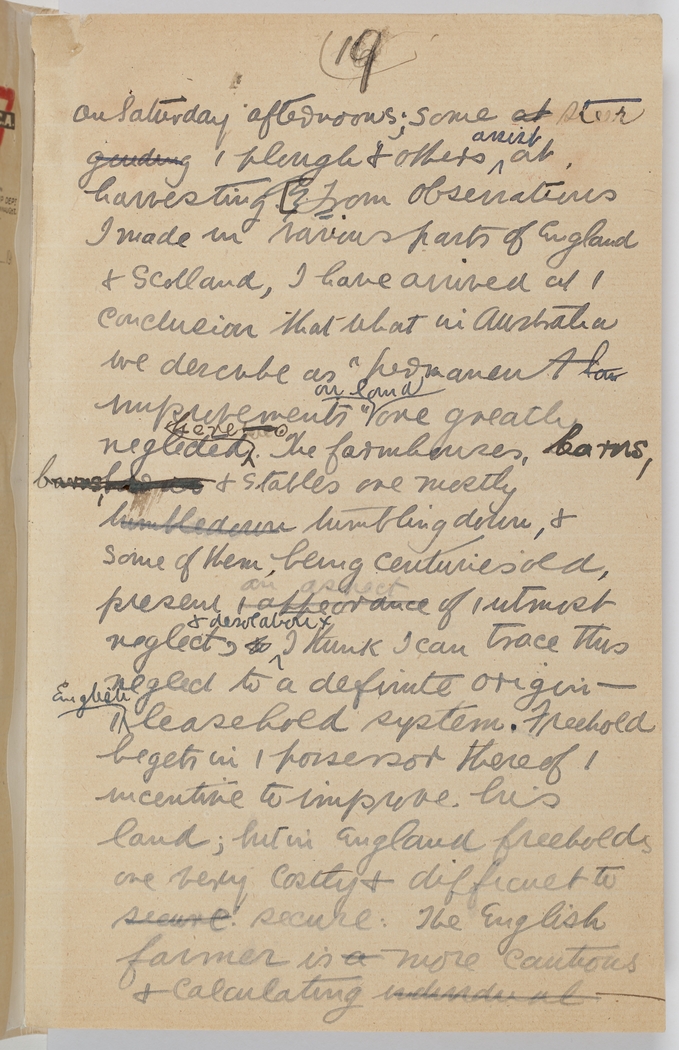 19
on Saturday afternoons; some at steer
guiding / plough & others assist at
harvesting. [From observations
I made in various parts of England
& Scotland, I have arrived at /
conclusion that what in Australia
we describe as "permanent
improvements on land" are greatly
neglected here. The farmhouses, barns,
barns, & stables are mostly
tumbledown tumbling down, &
some of them, being centuries old,
present / appearance an aspect of / utmost
neglect, & desolation. I think I can trace this
neglect to a definite origin —
/ English leasehold system. Freehold
begets in / possessor thereof /
incentive to improve his
land; but in England freeholds
are very costly & difficult to
secure! secure. The English
farmer is a more cautious
& calculating individual